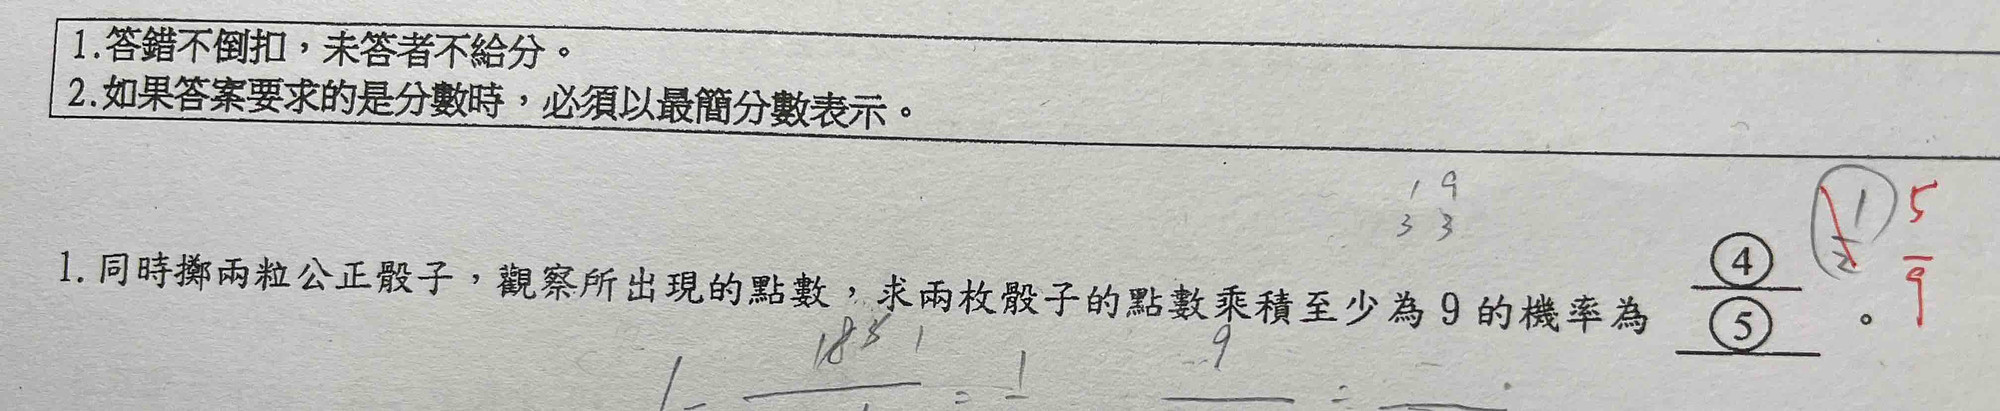 1.答錯不倒扣，未答者不給分。
2.如果答案要求的是分數時，必須以最簡分數表示。
1 9
3 3
1 5
2 9
1.同時擲兩粒公正骰子，觀察所出現的點數，求兩枚骰子的點數乘積至少為9的機率為 ④ 。
⑤
18 1 9
1 - = 1 =